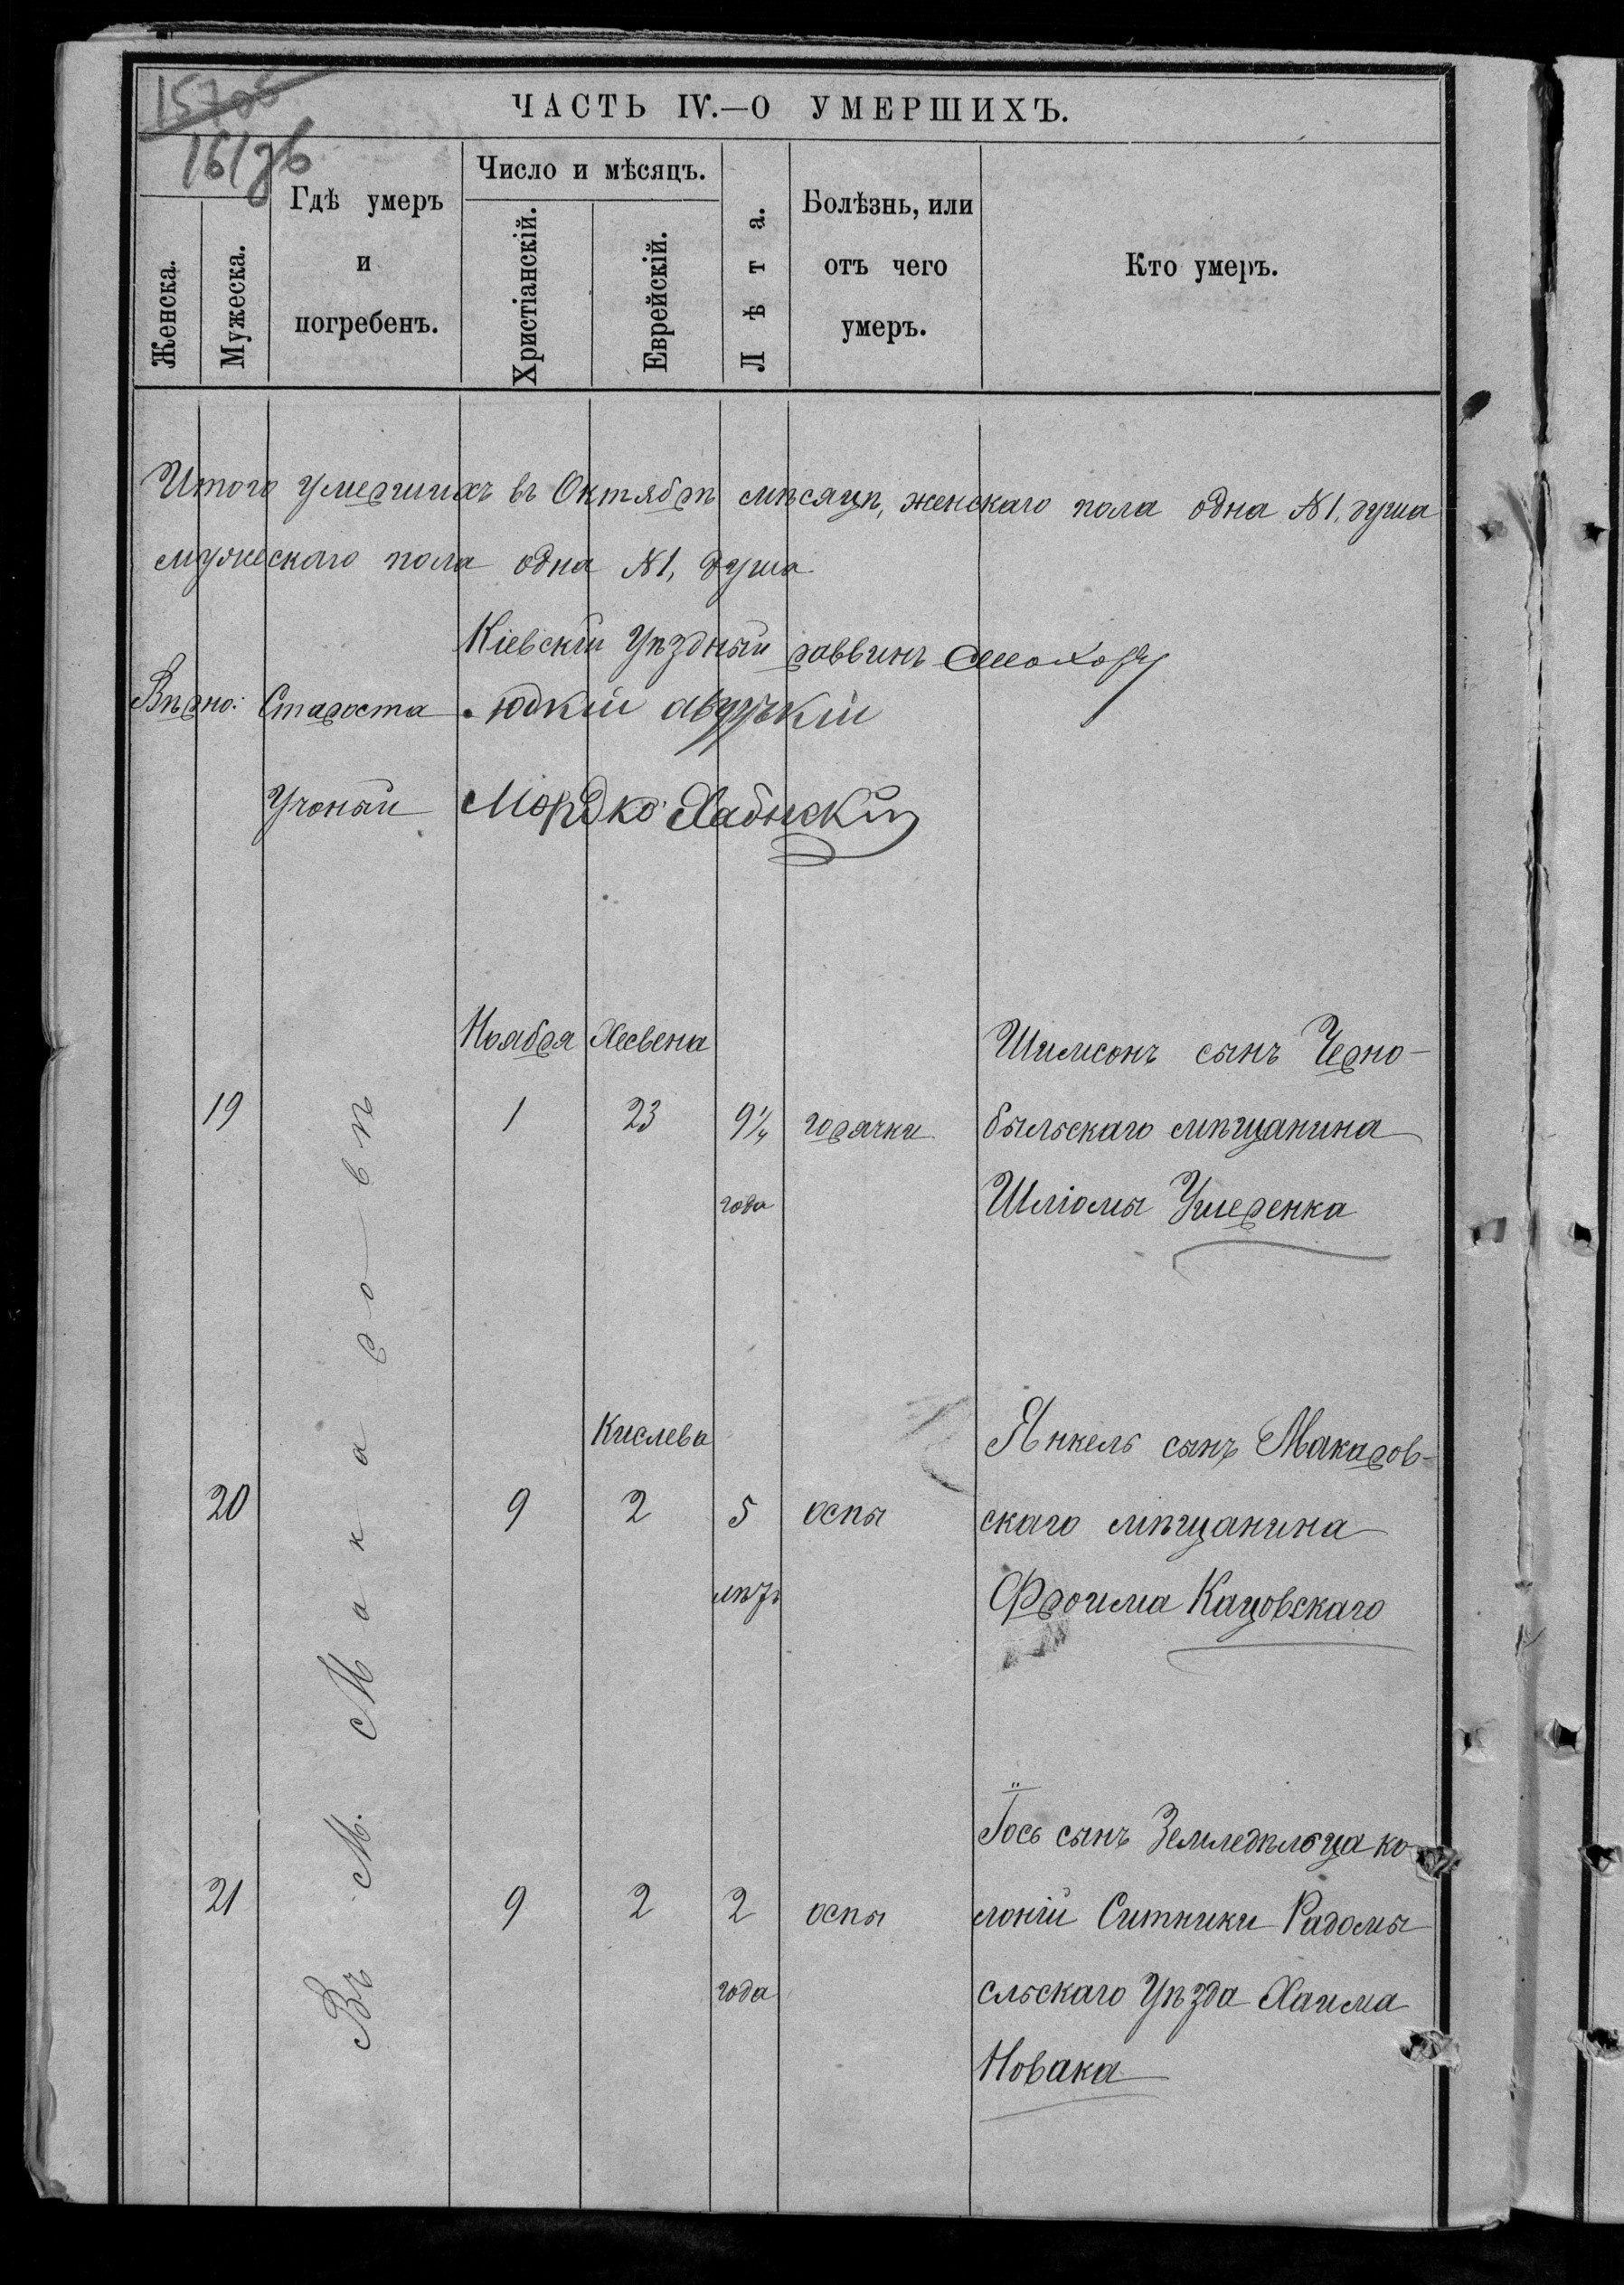 161зв
ЧАСТЬ IV.—О УМЕРШИХЪ.
Женска.
Мужеска.
Гдѣ умеръ
и
погребенъ.
Число и мѣсяцъ.
Христіанскій.
Еврейскій.
Лѣта.
Болѣзнь, или
отъ чего
умеръ.
Кто умеръ.
Итого умершихъ въ Октябрѣ мѣсяцѣ, женскаго пола одна №1, душа
мужескаго пола одна №1, душа
Кіевскій Уѣздный раввинъ
Вѣрно: Староста Юдкій
Учоный Мордко Хабнскій
Въ М. Макаровѣ
Ноября Хесвена
19 1 23 9¼ года горячки
Шимсонъ сынъ Черно-
быльскаго мѣщанина
Шліомы Умеренка
Кислева
20 9 2 5 лѣтъ оспы
Янкель сынъ Макаров-
скаго мѣщанина
Фроима Кацовскаго
21 9 2 2 года оспы
Іось сынъ Земледѣльца ко-
лоніи Ситники Радомы
сльскаго Уѣзда Хаима
Новака